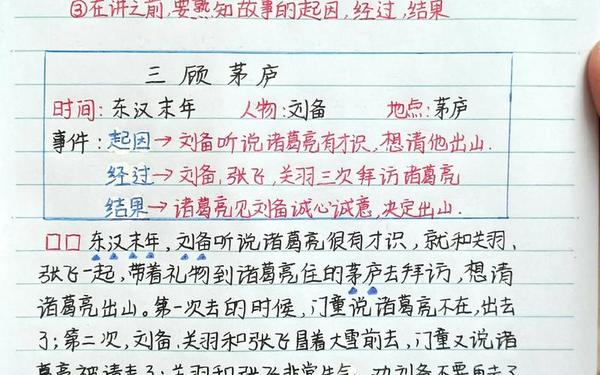 ③在讲之前,要熟知故事的起因,经过,结果
三顾茅庐
时间:东汉末年 人物:刘备 地点:茅庐
事件:起因→刘备听说诸葛亮有才识,想请他出山.
经过→刘备,张飞,关羽三次拜访诸葛亮
结果→诸葛亮见刘备诚心诚意,决定出山.
东汉末年,刘备听说诸葛亮很有才识,就和关羽、
张飞一起,带着礼物到诸葛亮住的茅庐去拜访,想请
诸葛亮出山。第一次去的时候,门童说诸葛亮不在,出去
了;第二次,刘备、关羽和张飞冒着大雪前去,门童又说诸
葛亮被请走了;关羽和张飞非常生气,劝刘备不要再去了